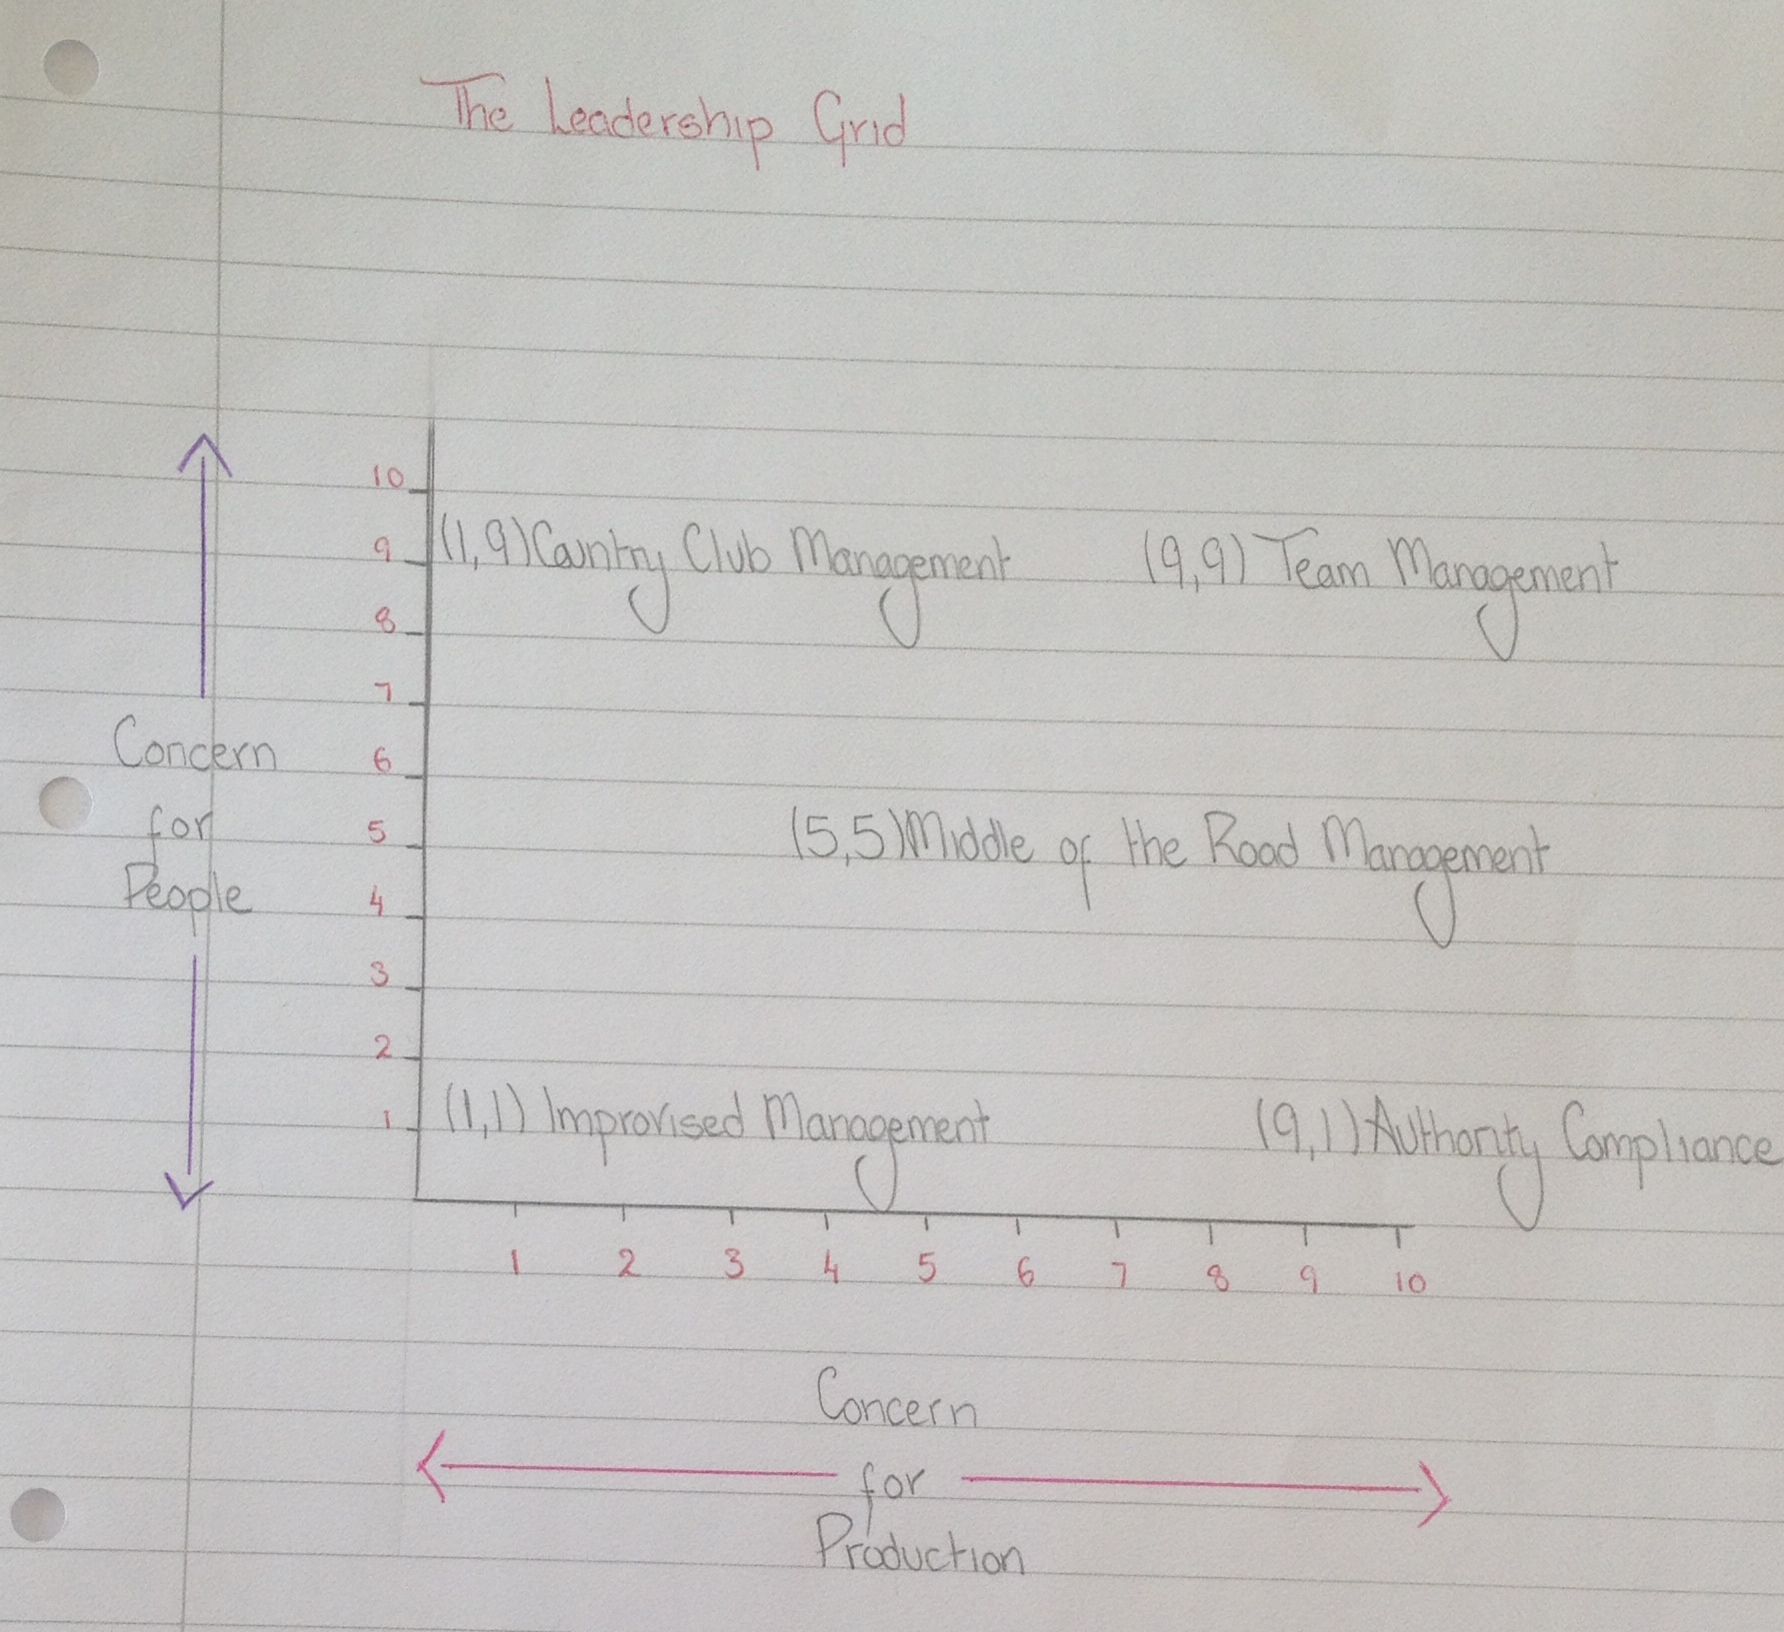 The Leadership Grid
10
(1,9) Country Club Management (9,9) Team Management
9
8
7
Concern
for
People
6
5
(5,5) Middle of the Road Management
4
3
2
1
(1,1) Improvised Management (9,1) Authority Compliance
1 2 3 4 5 6 7 8 9 10
Concern
for
Production